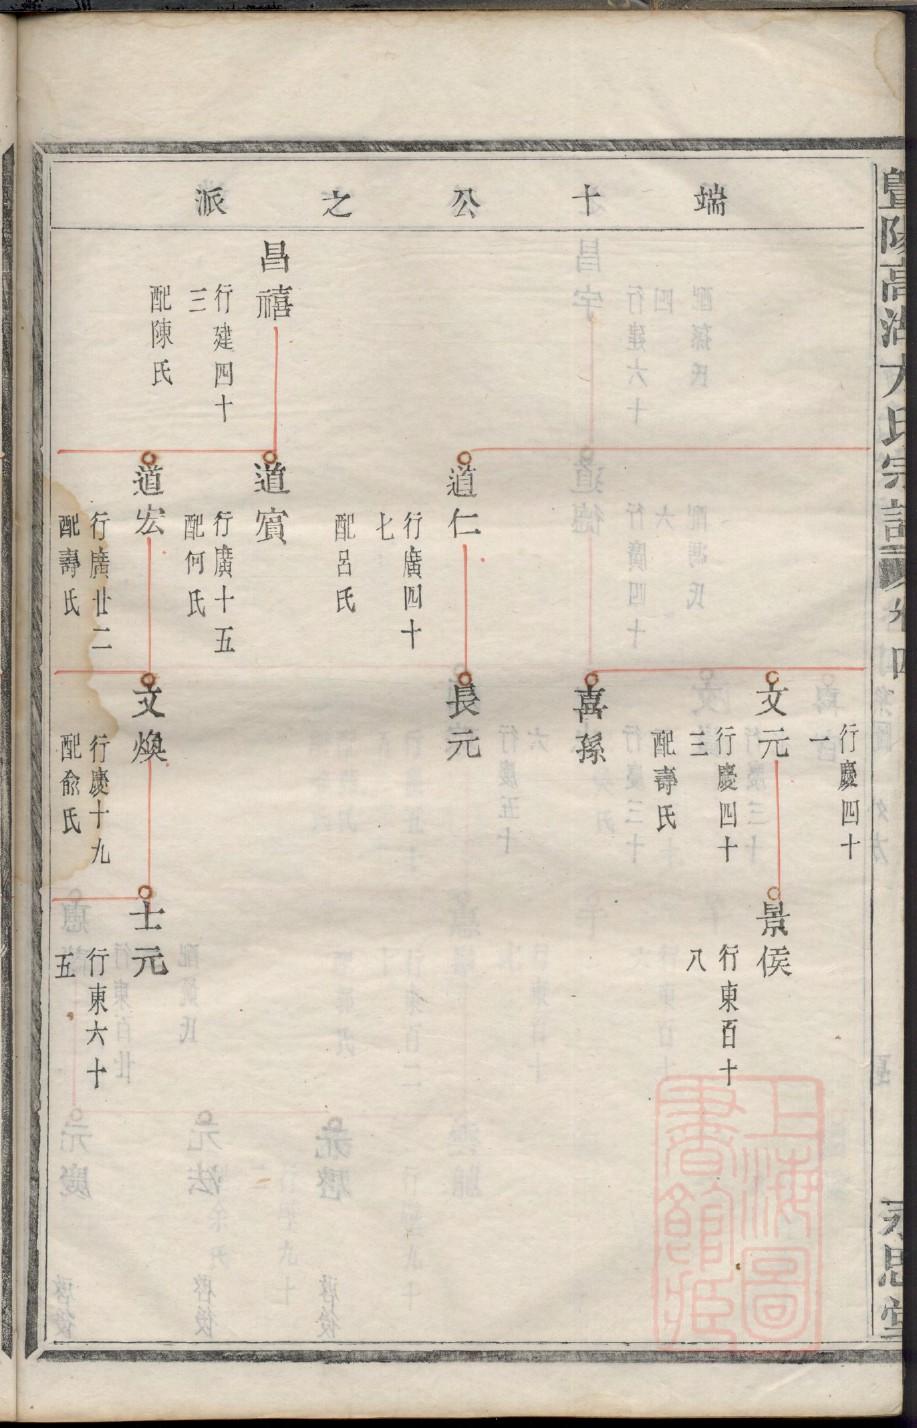 端十公之派
行慶四十
一
文元
行慶四十
三
配壽氏
景侯
行東百十
八
喜孫
道仁
行廣四十
七
配呂氏
長元
昌禧
行建四十
三
配陳氏
道賓
行廣十五
配何氏
道宏
行廣廿二
配壽氏
文煥
行慶十九
配俞氏
士元
行東六十
五
上海圖
書館藏